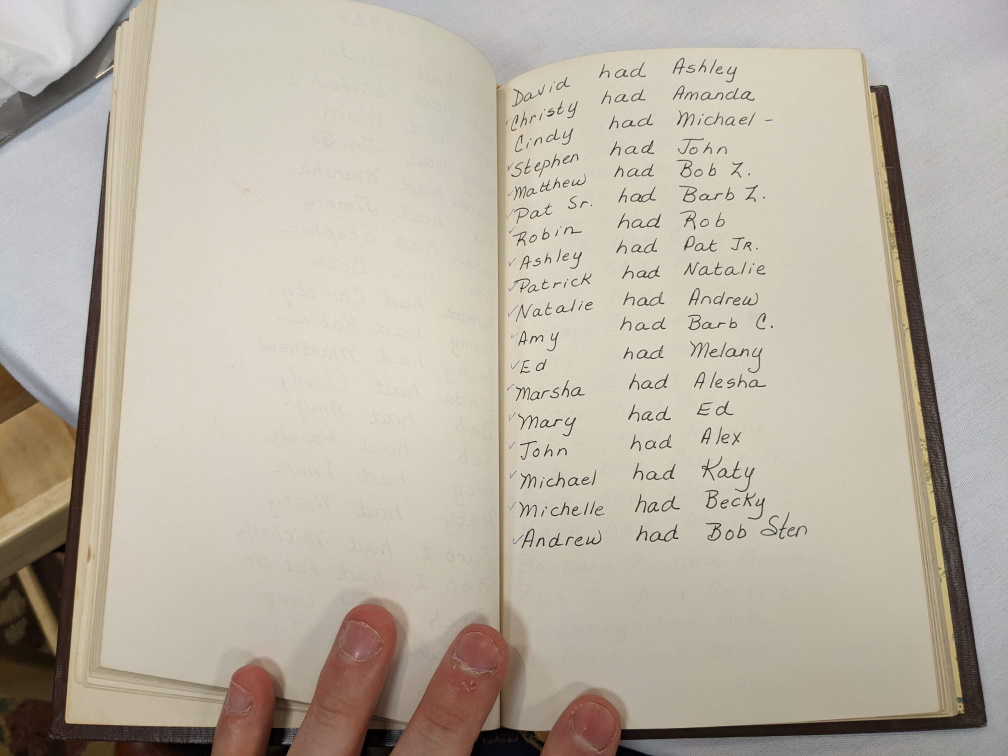 David had Ashley
Christy had Amanda
Cindy had Michael -
Stephen had John
Matthew had Bob Z.
Pat Sr. had Barb Z.
Robin had Rob
Ashley had Pat JR.
Patrick had Natalie
Natalie had Andrew
Amy had Barb C.
Ed had Melany
Marsha had Alesha
Mary had Ed
John had Alex
Michael had Katy
Michelle had Becky
Andrew had Bob Sten